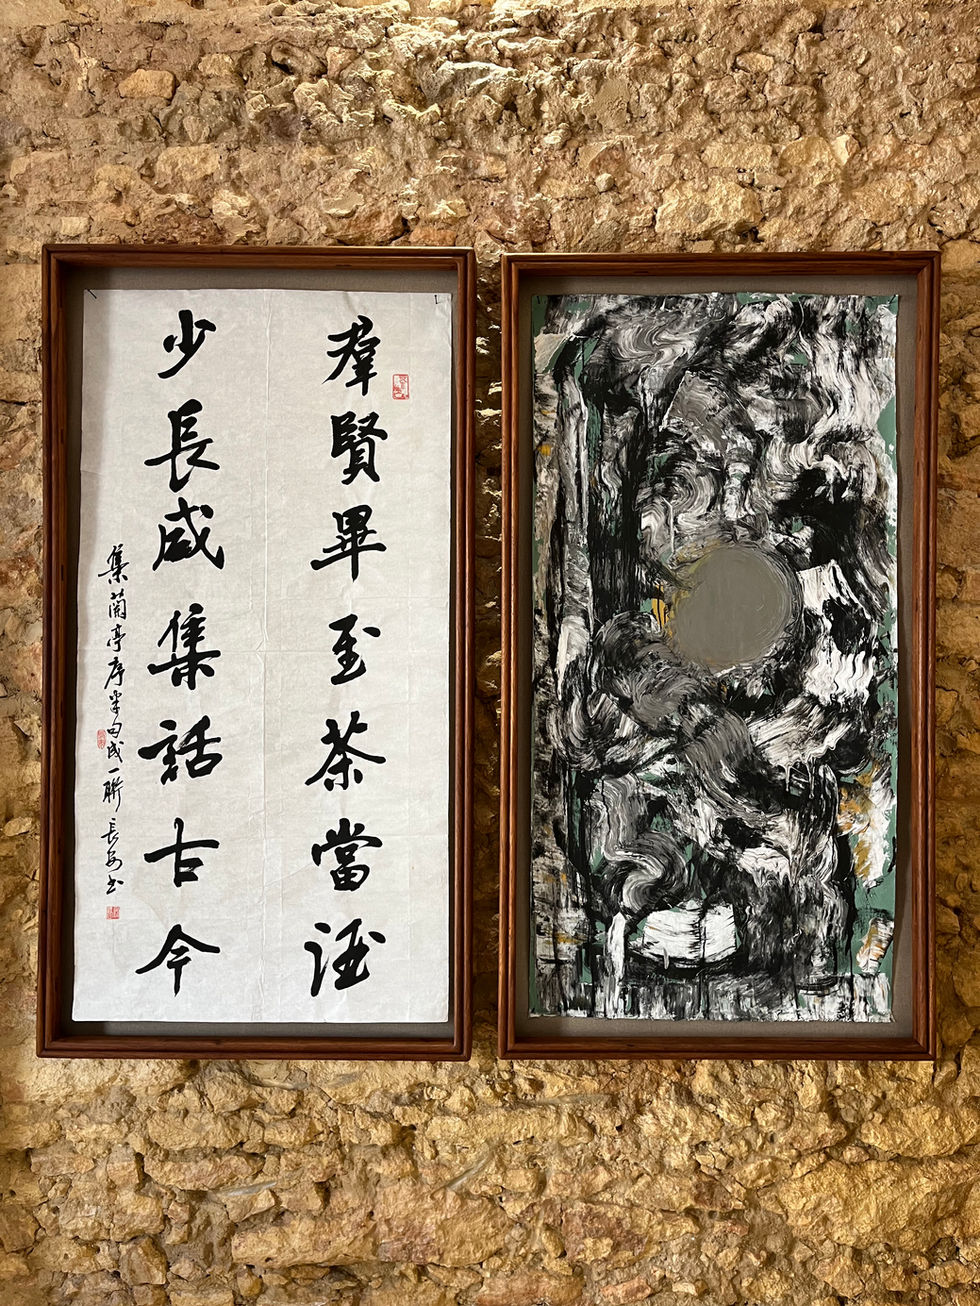 羣賢畢至茶當酒
少長咸集話古今
集蘭亭序半句成一聯 長安書